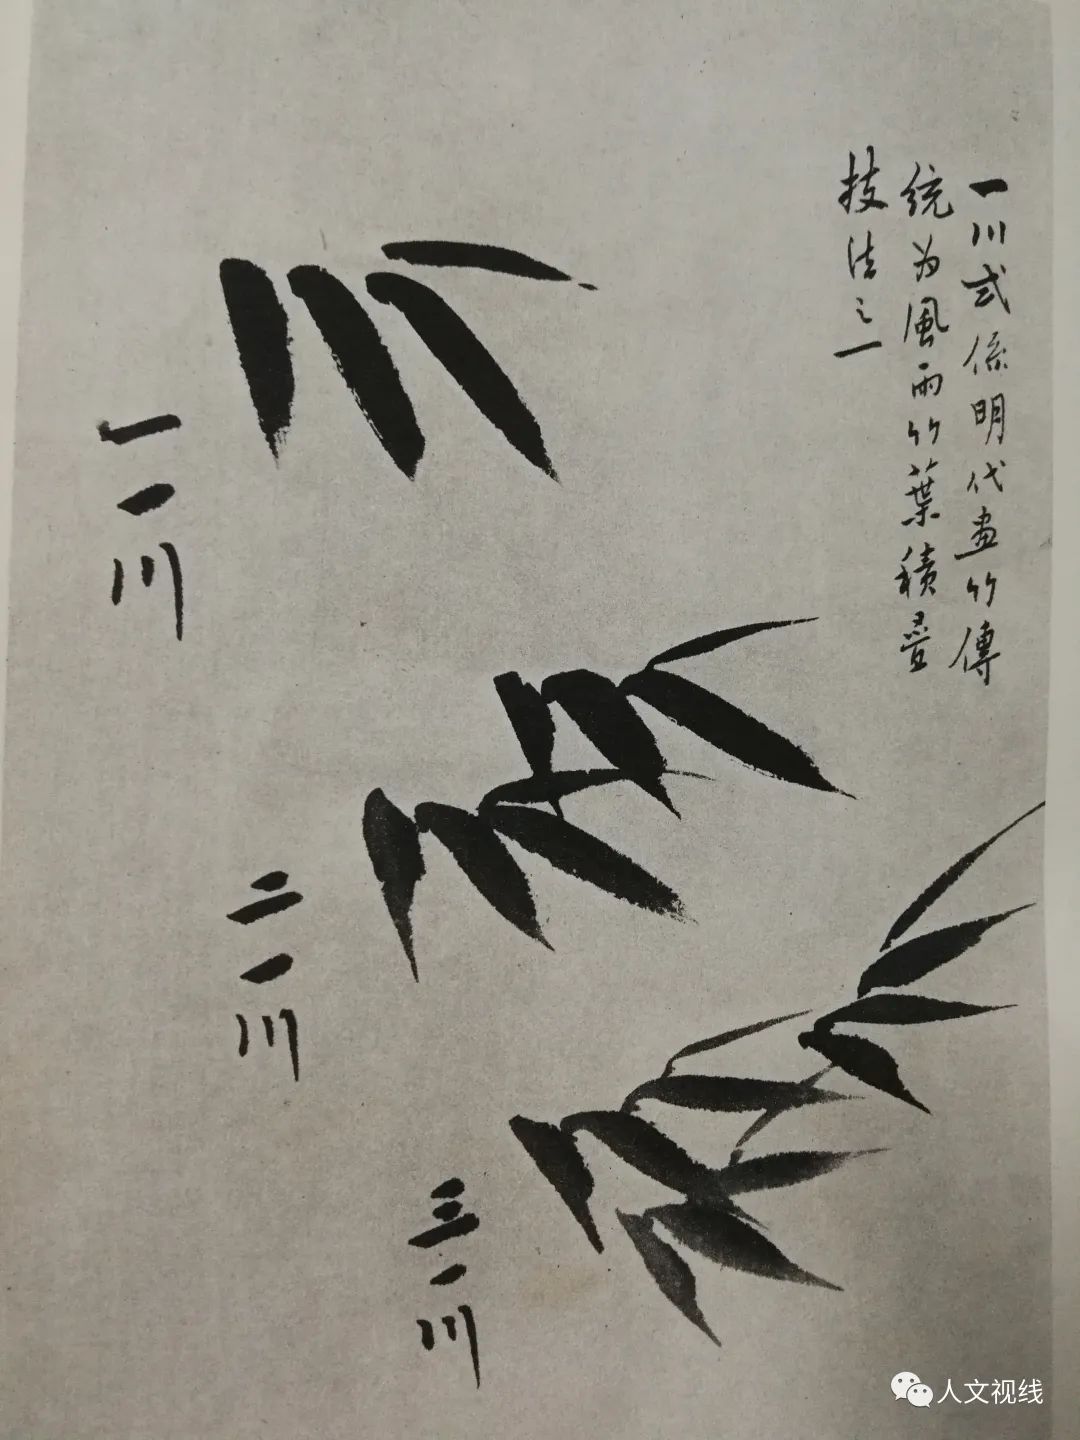 一川式係明代画竹傳
统为風雨竹葉積疊
技法之一
一一川
二一川
三一川
人文视线